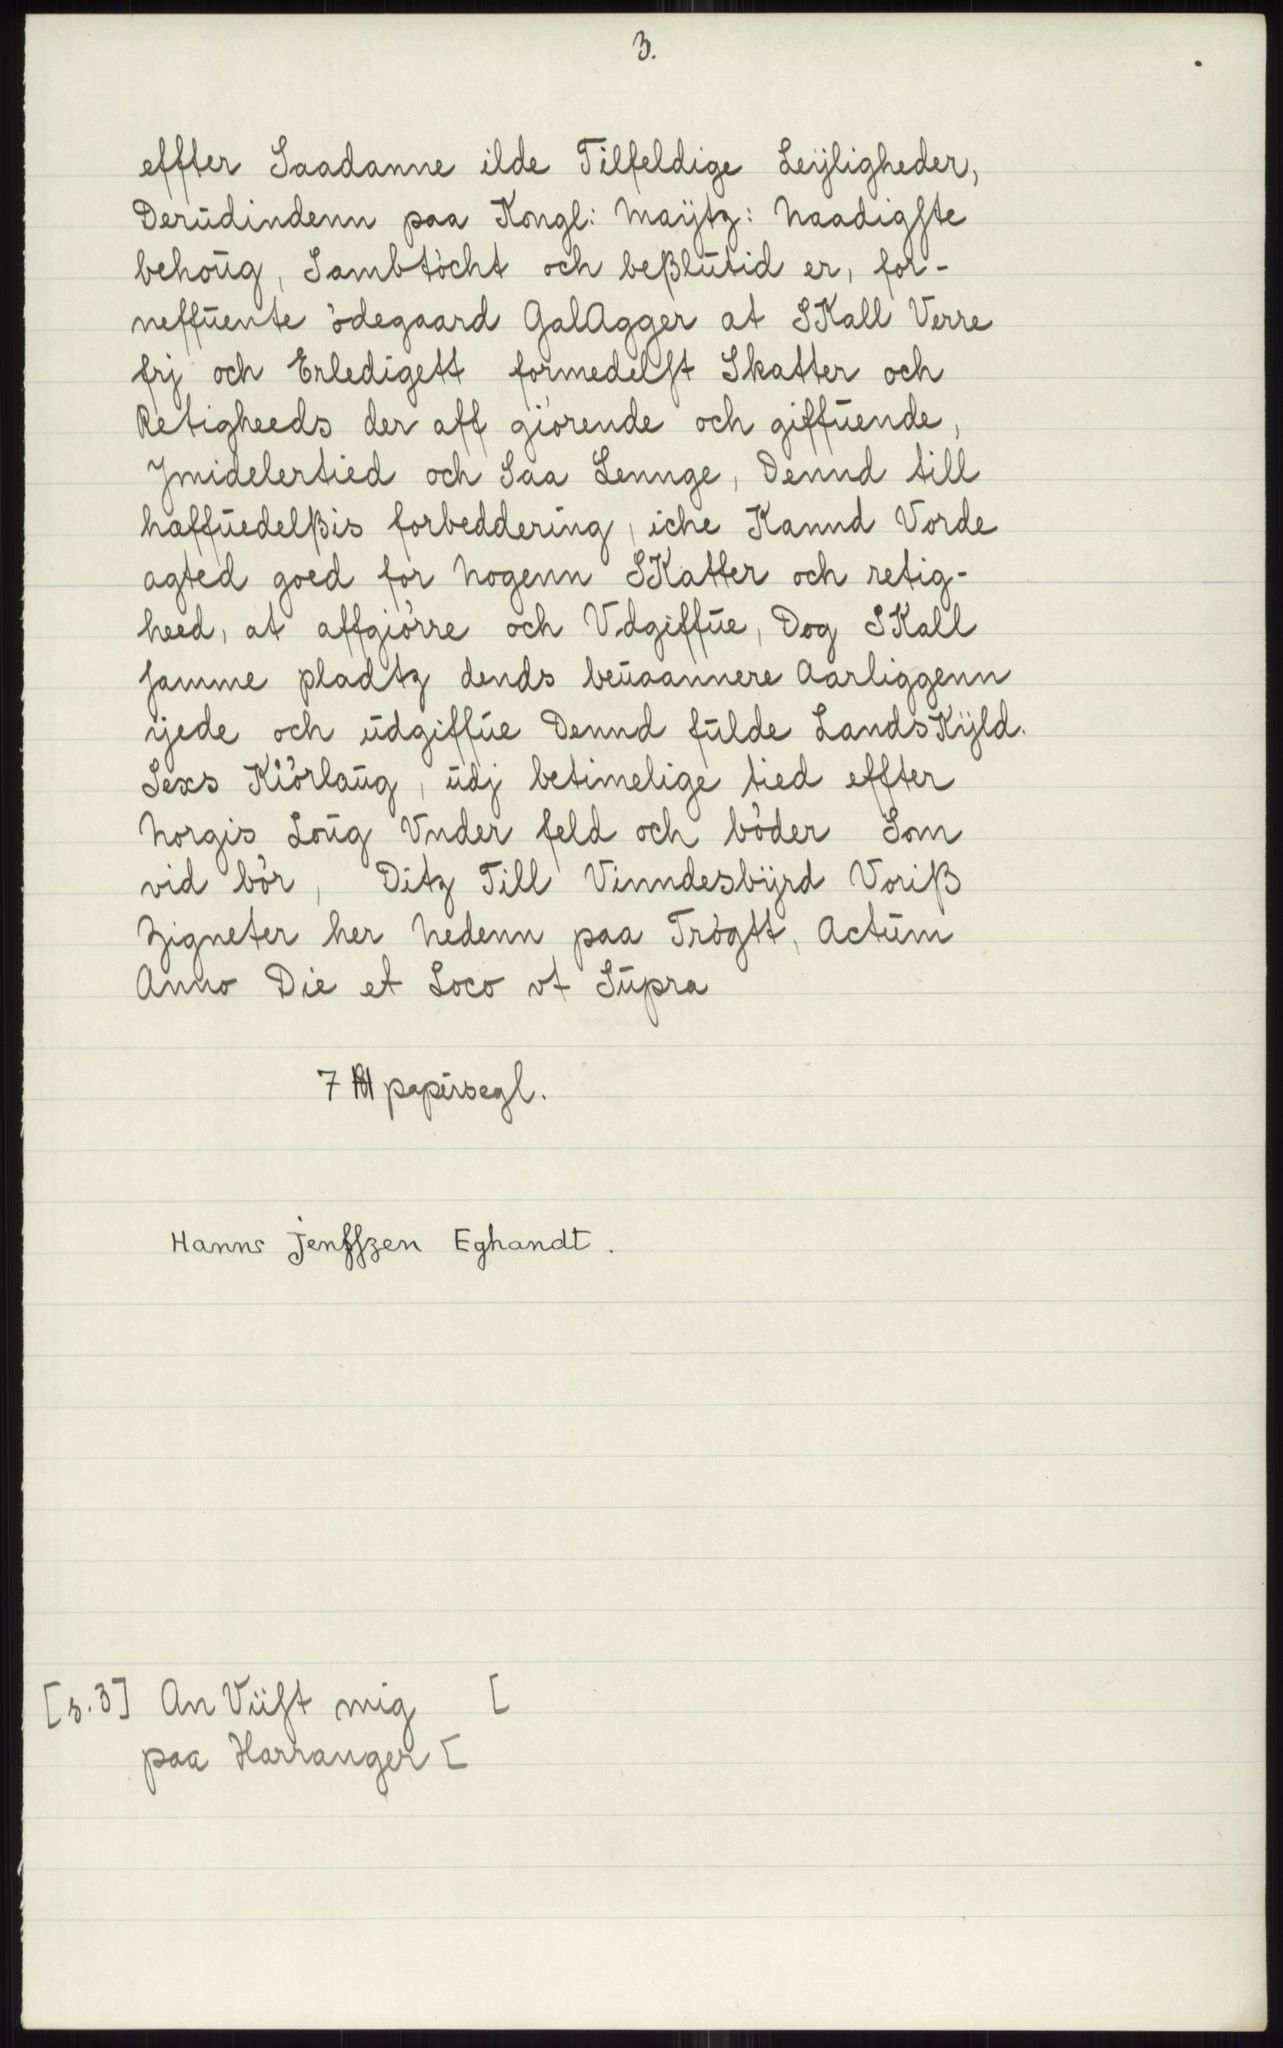 3.
effter Saadanne ilde Tilfeldige Leÿligheder,
Derūdindenn paa Kongl: Maÿtz: Naadigste
behoūg, Sambtöcht och beßlūtid er, for-
neffūente ödegaard GalAgger at SKall Verre
frj och Erledigett formedelst Skatter och
Retigheeds der aff giörende och giffūende,
Jmidelertied och Saa Lennge, Dennd till
haffūedelßis forbeddering, iche Kannd Vorde
agted goed for Nogenn SKatter och retig-
heed, at affgiörre och Vdgiffūe, Dog SKall
samme pladtz dends beūaannere Aarliggenn
ÿede och ūdgiffūe Dennd fulde LandsKÿld.
Sexs Kiörlaūg, ūdj betimelige tied effter
Norgis Loūg Vnder feld och böder Som
vid bör, Ditz Till Vinndesbÿrd Voriß
Zigneter her Nedenn paa Trögtt, Actūm
Anno Die et Loco vt Sūpra
7 papirsegl.
Hanns jensszen Eghandt.
[s.3] An Viist mig [
paa Harranger [